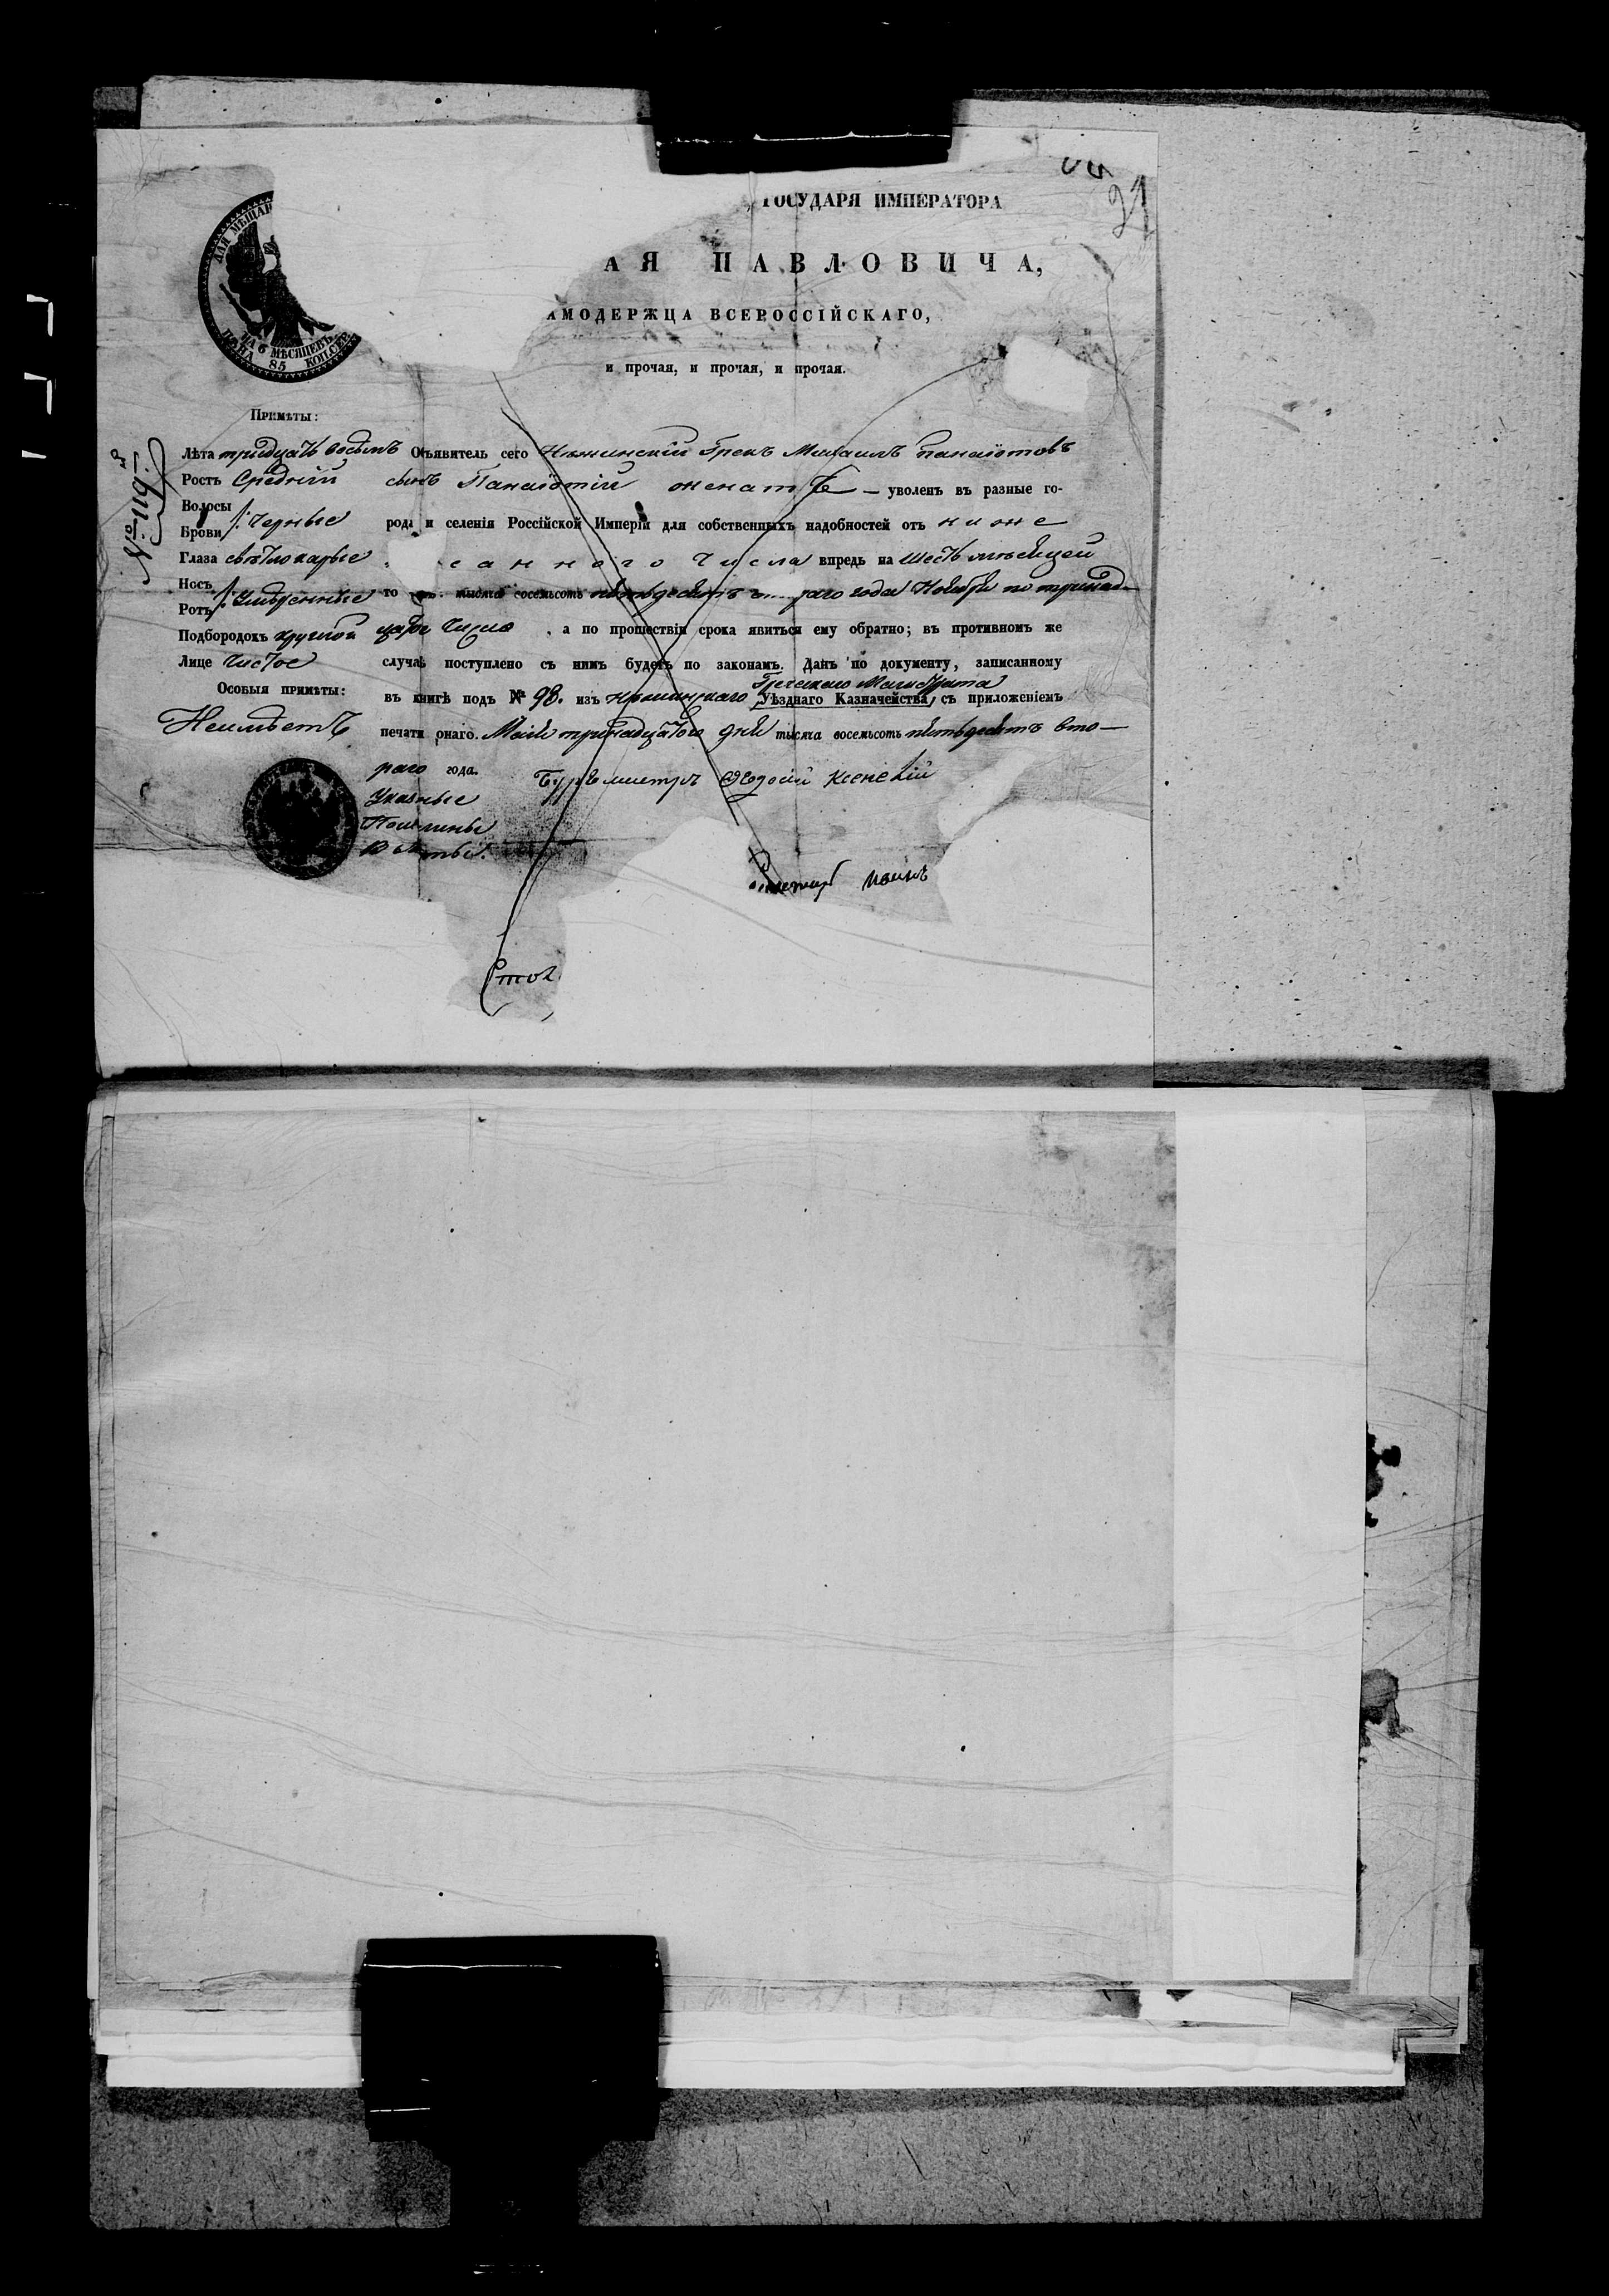 21
ГОСУДАРЯ ИМПЕРАТОРА
АЯ ПАВЛОВИЧА,
АМОДЕРЖЦА ВСЕРОССІЙСКАГО,
и прочая, и прочая, и прочая.
ДЛЯ МѢЩАН
НА 6 МѢСЯЦЕВЪ
ЦѢНА 85 КОП. СЕР.
№ 119
Примѣты:
Лѣта тридцать восемь
Ростъ Средній
Волосы
Брови Черные
Глаза свѣтлокарые
Носъ
Ротъ Умѣренные
Подбородокъ круглой
Лице Чистое
Особыя примѣты:
Неимѣетъ
Объявитель сего Нѣжинскій Грекъ Михаилъ Панаіотовъ
сынъ Панаіотій женатъ — уволенъ въ разные го-
род и селенія Россійской Имперіи для собственныхъ надобностей отъ ниже
саннаго Числа впредь на шесть мѣсяцей
то тысяча восемьсотъ пятьдесятъ раго года Ноября по тринад-
цатое Число, а по прошествіи срока явиться ему обратно; въ противномъ же
случаѣ поступлено съ нимъ будетъ по законамъ. Данъ по документу, записанному
Греческаго Магистрата
въ книгѣ подъ № 98. изъ Нѣжинскаго Уѣзднаго Казначейства, съ приложеніемъ
печати онаго. Маія тринадцатого дня тысяча восемьсотъ пятьдесятъ вто-
раго года.
Указные
Пошлины
Взяты.
Бургмистръ Ѳедосій